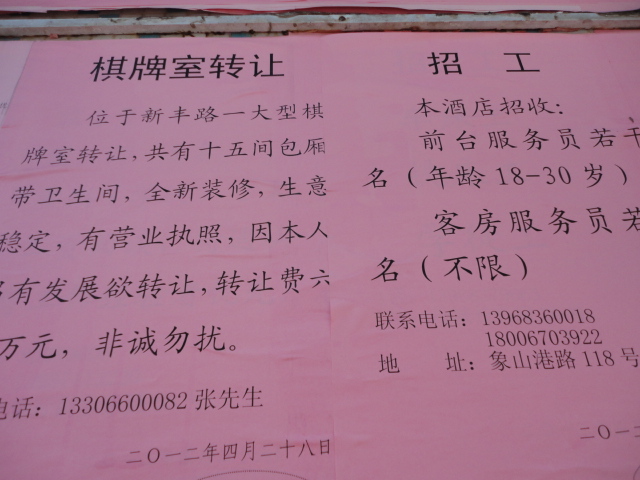 棋牌室转让
位于新丰路一大型棋
牌室转让，共有十五间包厢
带卫生间，全新装修，生意
稳定，有营业执照，因本人
有发展欲转让，转让费六
万元，非诚勿扰。
电话：13306600082 张先生
二〇一二年四月二十八日
招 工
本酒店招收：
前台服务员若干
名（年龄 18-30 岁）
客房服务员若
名（不限）
联系电话：13968360018
18006703922
地 址：象山港路 118 号
二〇一二